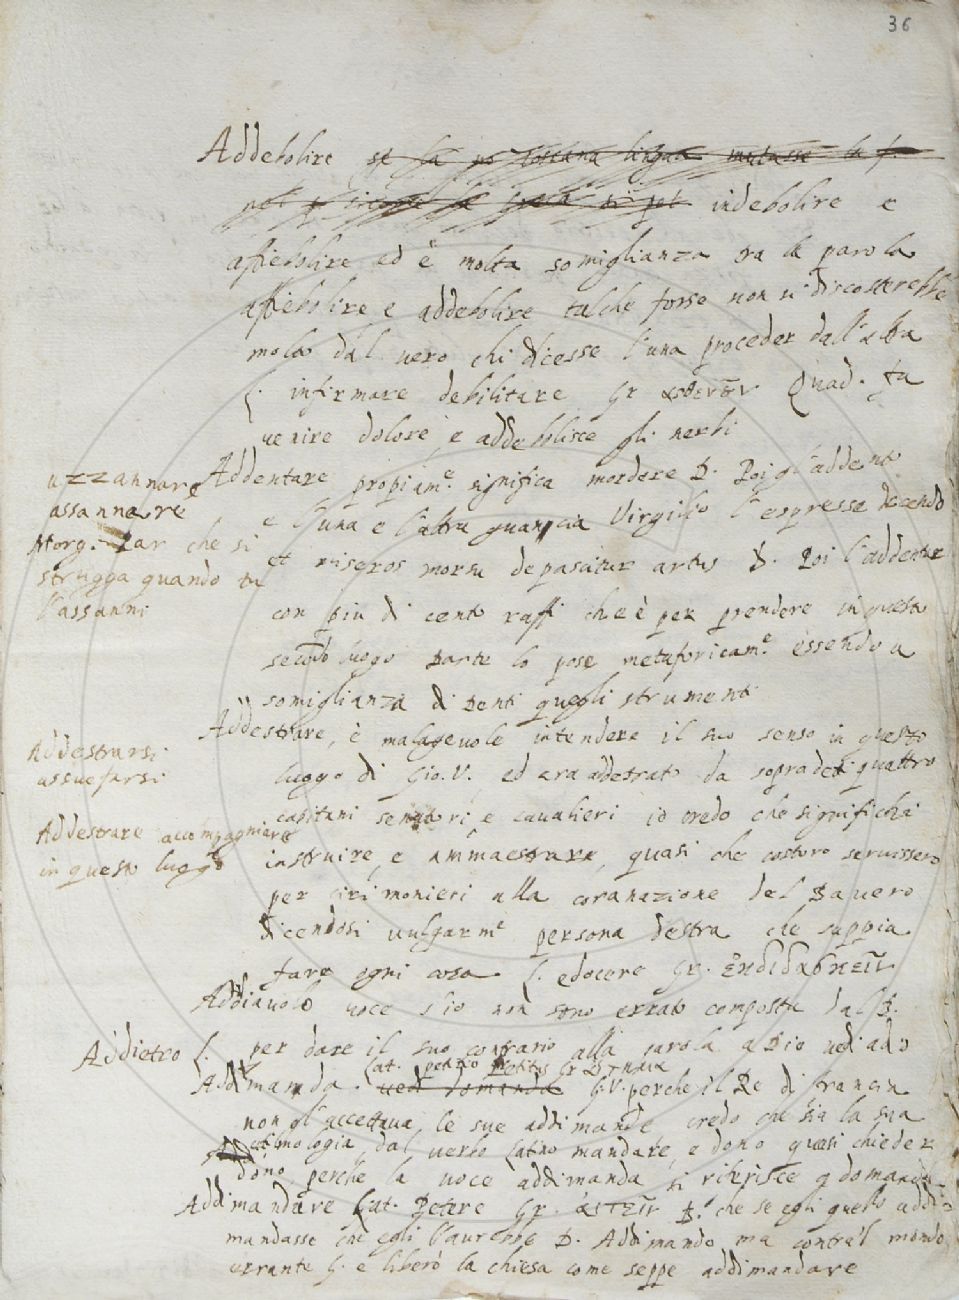 36
Addebolire se la toscana lingua mutasse la f.
indebolire e
affiebolire ed è molta somiglianza tra le parola
affiebolire e addebolire talche forse non si discosterebbe
molto dal vero chi dicesse l'una proceder dall'altra
L. infirmare debilitare Gr ἀσθενεῖν Quad. fa
venire dolore, e addebolisce gli nerbi
Addentare propiam.e significa mordere D. Poi gl'addentò
e l'una e l'altra guancia Virgilio l'espresse dicendo
et miseros morsu depascitur artus D. Poi l'addentar
con piu di cento raffi che è per prendere in questo
secondo luogo Dante lo pose metaforicam.e essendo a
somiglianza di denti quegli strumenti
uzzannare
assannare
Morg. che si
strugga quando tu
l'assanni
Addestrare, è malagevole intendere il suo senso in questo
luogo di Gio. V. ed era addestrato da sopradeti quattro
capitani senatori e cavalieri io credo che significhi
instruire, e ammaestrare, quasi che costoro servissero
per cirimonieri alla coronazione del Bavero
dicendosi vulgarm.e persona destra che sappia
fare ogni cosa L. edocere Gr.
Addestrarsi
assuefarsi
Addestrare accompagniare
in questo luogo
Addiavolo voce s'io non sono errato composta dal D.
per dare il suo contrario alla parola a Dio vedi ad
Addietro L.
Addimanda. vedi domanda G.V. perche il Re di francia
Lat. petitio Petitus Gr
non gl'accettava le sue addimande credo che sia la sua
etimologia dal verbo latino mandare, e dono quasi chieder
dono, perche la voce addimanda si riferisce
Addimandare Lat. Petere Gr. αἰτεῖν D. che se egli questo addi-
mandasse che egli l'averebbe D. Addimandò ma contra'l mondo
errante G. e liberò la chiesa come seppe addimandare